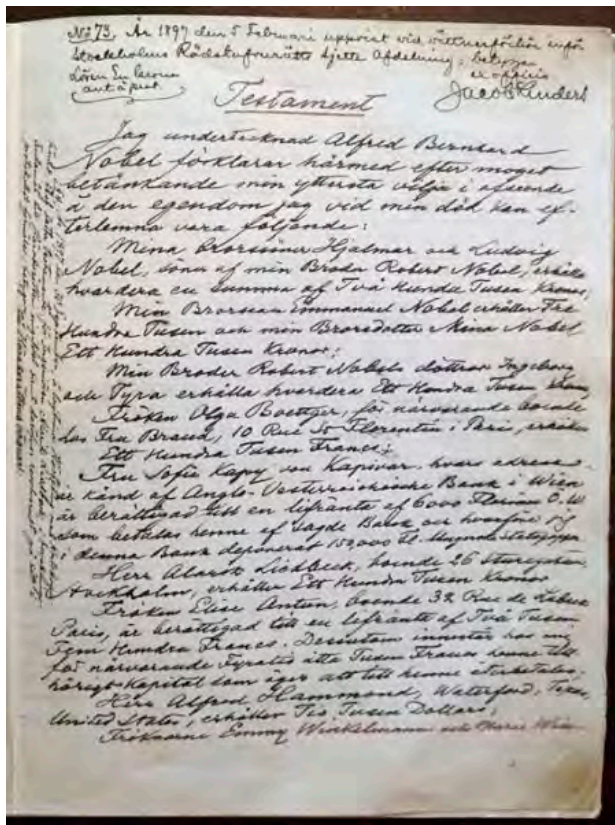 No 73. År 1897 den 5 Februari uppvist vid vittnesförhör inför
Stockholms Rådstufvurätts sjette Afdelning; betygar
Lösen En krona ex officio
Jacob Linders
Testament
Jag undertecknad Alfred Bernhard
Nobel förklarar härmed efter moget
betänkande min yttersta vilja i afseende
å den egendom jag vid min död kan ef-
terlemna vara följande:
Mina Brorsöner Hjalmar och Ludvig
Nobel, söner af min Broder Robert Nobel, erhålla
hvardera en summa af Två Hundra Tusen Kronor;
Min Brorson Emmanuel Nobel erhåller Tre
Hundra Tusen och min Brorsdotter Mina Nobel
Ett Hundra Tusen Kronor;
Min Broder Robert Nobels döttrar Ingeborg
och Tyra erhålla hvardera Ett Hundra Tusen Kronor
Fröken Olga Boettger, för närvarande boende
hos Fru Brand, 10 Rue St Florentin i Paris, erhåller
Ett Hundra Tusen Francs;
Fru Sofie Kapy von Kapivar, hvars adress
är känd af Anglo-Oesterreichische Bank i Wien
är berättigad till en lifränta af 6000 Florins Ö.W.
som betalas henne af sagde Bank och hvarföre jag
i denna Bank deponerat 150,000 Fl. i Ungerska Statspapper
Herr Alarik Liedbeck, boende 26 Sturegatan,
Stockholm, erhåller Ett Hundra Tusen Kronor
Fröken Elise Antun, boende 32 Rue de Lubeck
Paris, är berättigad till en lifränta af Två Tusen
Fem Hundra Francs. Dessutom innestår hos mig
för närvarande Fyratio åtta Tusen Francs henne till-
hörigt Kapital som äger att till henne återbetalas;
Herr Alfred Hammond, Waterford, Texas,
United States, erhåller Tio Tusen Dollars;
Fröknarne Emmy Winkelmann och Marie Win-